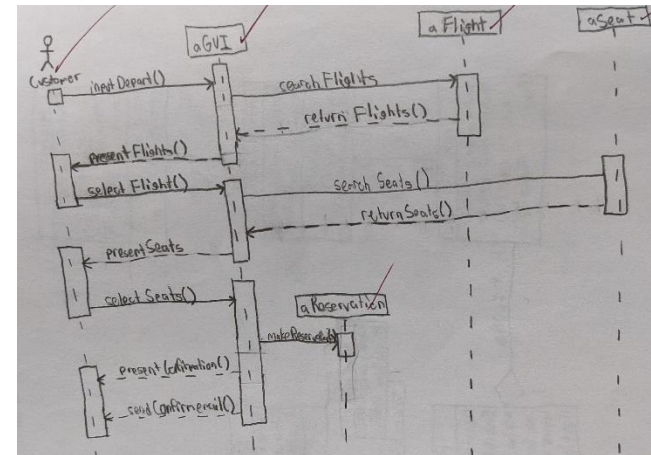 aGUI
a Flight
aSeat
Customer
inputDepart()
searchFlights
return Flights()
presentFlights()
select Flight()
serch Seats()
returnSeats()
presentSeats
select Seats()
aReservation
makeReservation()
present Confirmation()
send Confirmemail()